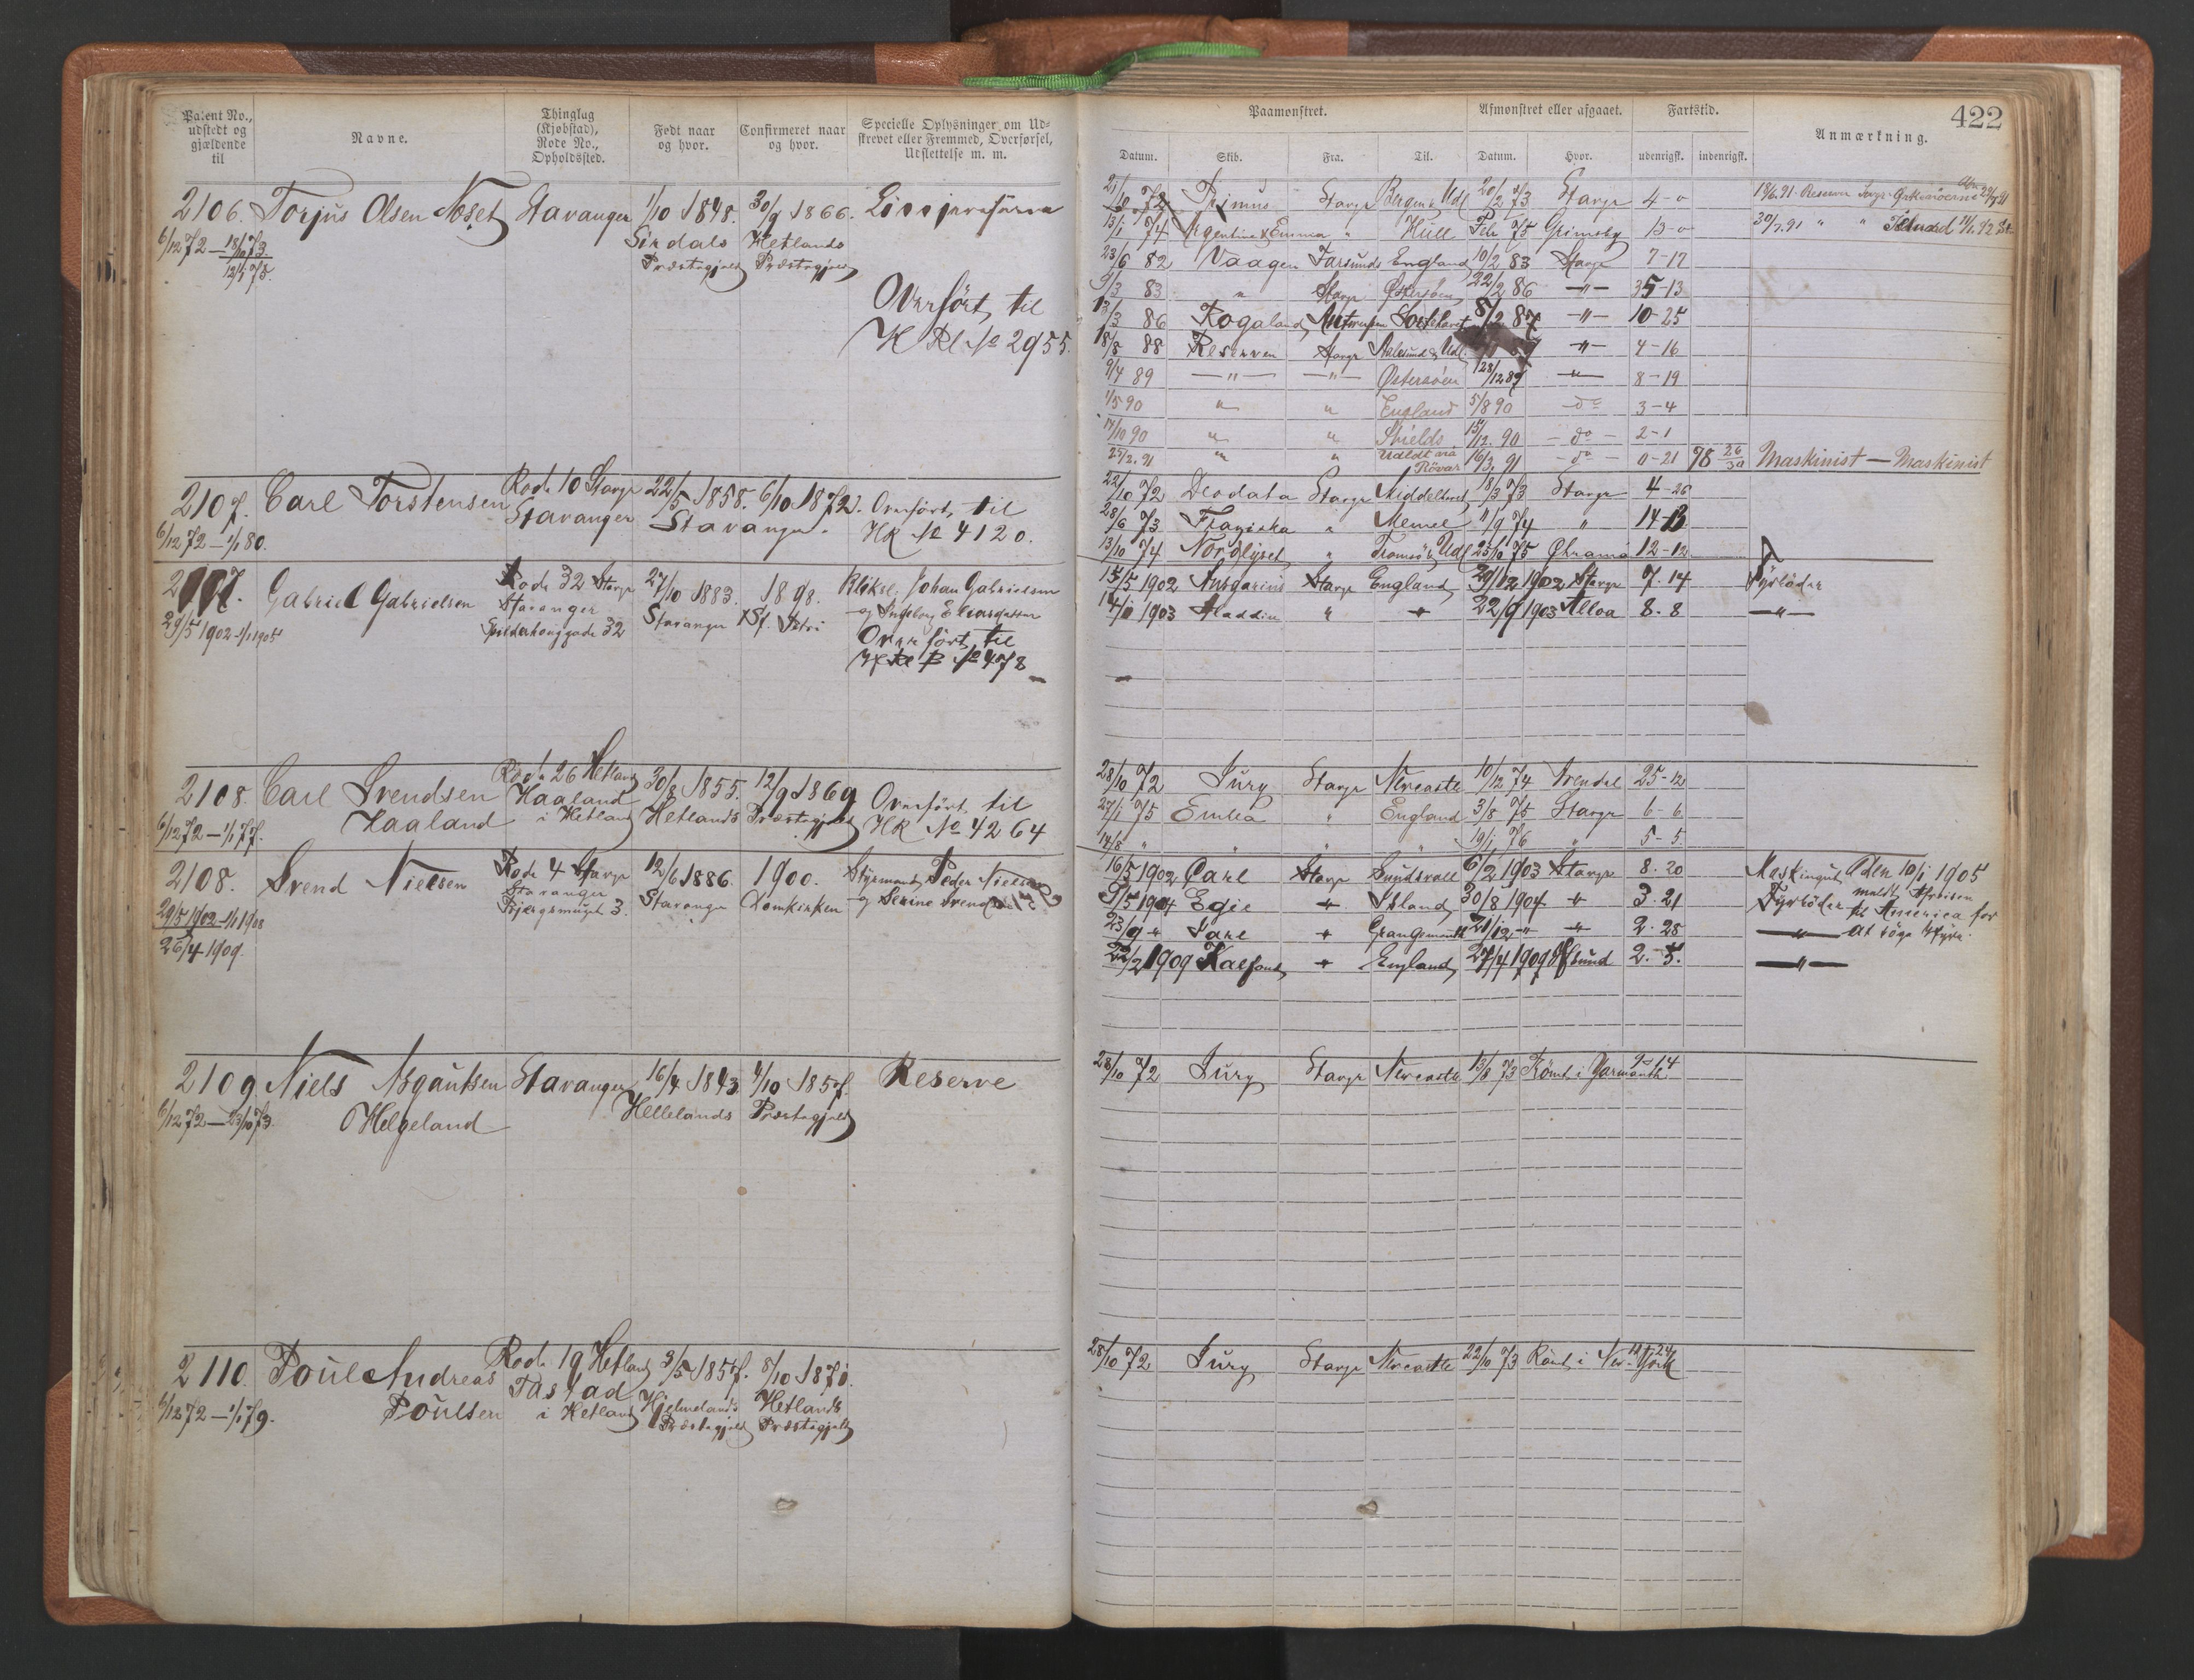 Patent No., udstedt og gjældende til
Navne.
Thinglag (Kjøbstad), Rode No., Opholdssted.
Født naar og hvor.
Confirmeret naar og hvor.
Specielle Oplysninger om Udskrevet eller Fremmed, Overførsel, Udslettelse m. m.
2106. Torjus Olsen Noset Stavanger 1/10 1848. 30/9 1866.
6/12 72 — 18/10 73 Sirdals Hetlands
12/1 75. Præstegjeld Præstegjeld
Overført til
H Rl No 2955.
2107. Carl Torstensen Rode 10 Stavgr 22/5 1858. 6/10 1872. Overført til
6/12 72 — 1/1 80. Stavanger Stavanger. HR No 4120.
2107. Gabriel Gabrielsen Rode 32 Stavgr 27/10 1883. 1898. Johan Gabrielsen
29/5 1902 - 1/1 1905 Stavanger Stavanger St. Petri og Ingeborg
32 Overført til
No 478
2108. Carl Svendsen Rode 26 Hetland 30/8 1855. 12/9 1869 Overført til
Haaland Haaland
6/12 72 — 1/1 77. i Hetland Hetlands Præstegjeld HR No 4264
2108. Svend Nielsen Rode 4 Stavgr 12/6 1886. 1900. Styrmand Peder Nielsen
29/5 1902 - 1/1 1908 Stavanger Stavanger Domkirken og Serine
26/4 1909. 3.
2109. Niels Asgautsen Stavanger 16/4 1843 4/10 1857. Reserve
6/12 72 — 23/10 73. Helgeland Hellelands Præstegjeld
2110. Poul Andreas Rode 19 Hetland 3/5 1857. 8/10 1871.
Tastad Hjelmelands Hetlands
6/12 72 — 1/1 79. Poulsen i Hetland Præstegjeld Præstegjeld
422
Paamønstret.
Afmønstret eller afgaaet.
Fartstid.
Anmærkning.
Datum. Skib. Fra. Til. Datum. Hvor. udenrigsk. indenrigsk.
72 Primus Stavgr Bergen & Udl 20/2 73 Stavgr 4-0
13/1 74 Argentine & Emma " Hull Febr 75 Grimsby 13-0
23/6 82 Vaagen Farsund England 10/2 83 Stavgr 7-17
9/3 83 " Stavgr Østersøen 22/2 86 -"- 35-13
13/3 86 Rogaland Antwerpen Sortehavet 8/2 87 -"- 10-25
18/8 88 Reserven Stavgr Aalesund & Udl. -"- 4-16
9/4 89 —"— —"— Østersøen 28/12 89 " 8-19
1/5 90 " " England 5/8 90 do 3-4
14/10 90 " " Shields 15/12. 90 - do - 2-1
25/2. 91 " " Udldt via Røvær 16/3. 91 - do - 0-21 78 26/30 Maskinist — Maskinist
22/10 72 Deodata Stavgr Middelhavet 18/3 73 Stavgr 4-26
28/6 73 " Memel 11/9 74 " 14-13
13/10 74 Nordlyset " Tromsø & Udl 25/10 75 12-12
15/5 1902 Ansgarius Stavgr England 29/12 1902 Stavgr 7.14 Fyrbøder
14/1 1903 Aladdin " " 22/9 1903 Alloa 8.8 —"—
28/10 72 Jury Stavgr Newcastle 10/12 74 Arendal 25-12
27/1 75 Embla " England 3/8 75 Stavgr 6-6
14/8 " " " 19/1 76 " 5-5.
16/5 1902 Carl Stavgr Sundsvall 6/2 1903 Stavgr 8.20 10/1 1905
9/5 1904 Egil " Island 30/8 1904 " 3.21 Fyrbøder til America for
23/9 " " Grangemouth 21/12 " " 2.28 —"— at søge Hyre.
22/2 1909 " England 27/4 1909 2.5. —"—
28/10 72 Jury Stavgr Newcastle 13/8 73 Rømt i Yarmouth 9-14
28/10 72 Jury Stavgr Newcastle 22/10 73 Rømt i New York